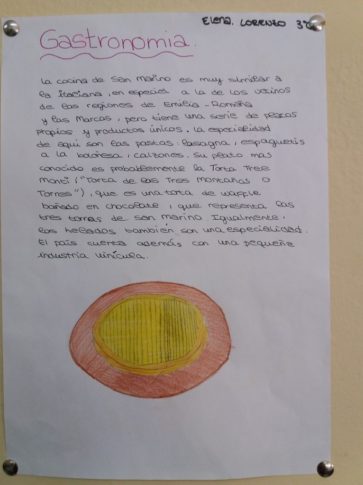 Elena. LORENZO 3º
Gastronomia.
La cocina de San Marino es muy similar a
la italiana, en especial a la de los vecinos
de las regiones de Emilia-Romaña
y las Marcas, pero tiene una serie de
propios y productos únicos. La especialidad
de aqui son las pastas: lasagna, espaguetis
a la boloñesa, calzones. Su plato mas
conocido es probablemente la Torta Tree
Monti ("Torta de las Tres Montañas o
Torres"), que es una torta de waffle
bañado en chocolate, que representa las
tres torres de san marino Igualmente.
los helados también son una especialidad.
El país cuenta además con una pequeña
industria vinícula.